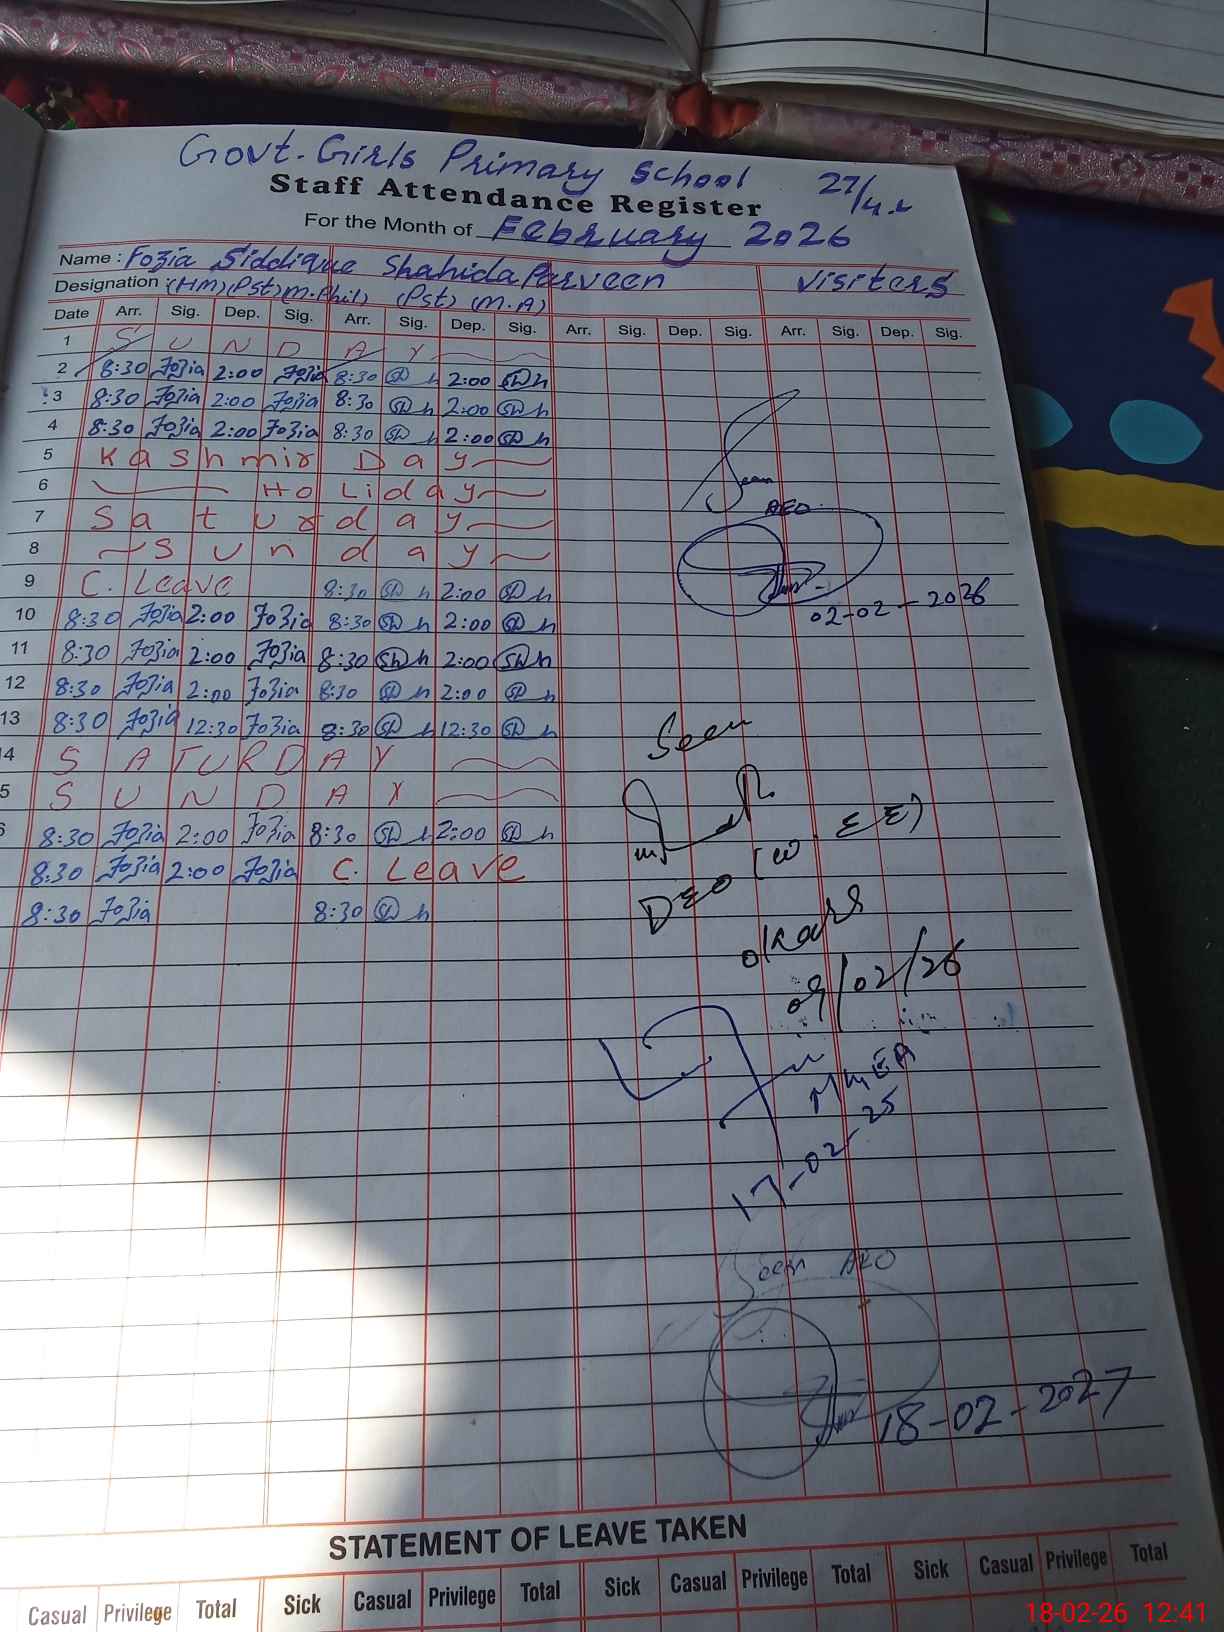 Govt. Girls Primary School 27/4.L
Staff Attendance Register
For the Month of February 2026
Name : Fozia Siddique Shahida Parveen Visiters
Designation : (HM)(Pst)(M.Phil) (Pst) (M.A)
Date Arr. Sig. Dep. Sig. Arr. Sig. Dep. Sig. Arr. Sig. Dep. Sig. Arr. Sig. Dep. Sig.
1 S U N D A Y
2 8:30 Fozia 2:00 Fozia 8:30 2:00
3 8:30 Fozia 2:00 Fozia 8:30 2:00
4 8:30 Fozia 2:00 Fozia 8:30 2:00
5 Kashmir Day
6 HoLiday
7 Saturday
8 Sunday
9 C. Leave 8:30 2:00
10 8:30 Fozia 2:00 Fozia 8:30 2:00
11 8:30 Fozia 2:00 Fozia 8:30 2:00
12 8:30 Fozia 2:00 Fozia 8:30 2:00
13 8:30 Fozia 12:30 Fozia 8:30 12:30
4 S A T U R D A Y
5 S U N D A Y
6 8:30 Fozia 2:00 Fozia 8:30 2:00
8:30 Fozia 2:00 Fozia C. Leave
8:30 Fozia 8:30
Seen
AEO
02-02-2026
Seen
DEO (W. EE)
okara
09/02/26
MEA
17-02-25
Seen AEO
18-02-2027
STATEMENT OF LEAVE TAKEN
Casual Privilege Total Sick Casual Privilege Total Sick Casual Privilege Total Sick Casual Privilege Total
18-02-26 12:41